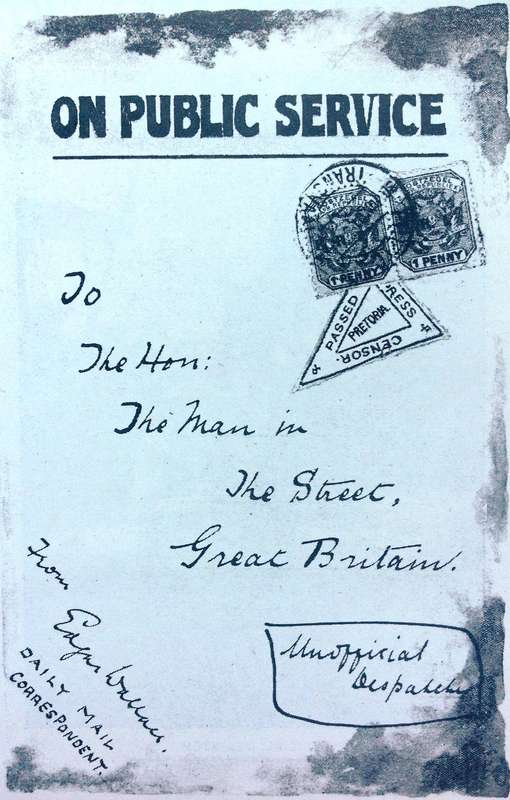 ON PUBLIC SERVICE
TRANS
POSTZEGEL
POSTZEGEL
1 PENNY
1 PENNY
PASSED
PRESS
CENSOR.
PRETORIA.
To
The Hon:
The Man in
The Street,
Great Britain.
From
Edgar Wallace.
DAILY MAIL
CORRESPONDENT.
Unofficial
Despatches